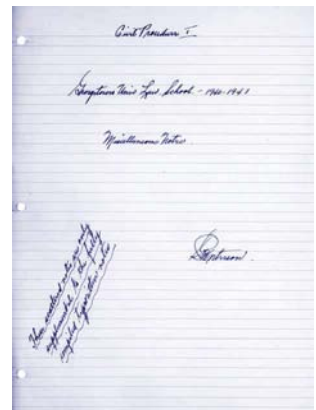 Civil Procedure I
Georgetown Univ Law School - 1940-1941
Miscellaneous Notes.
These notes are only
supplemental to the fully
compiled typewritten notes